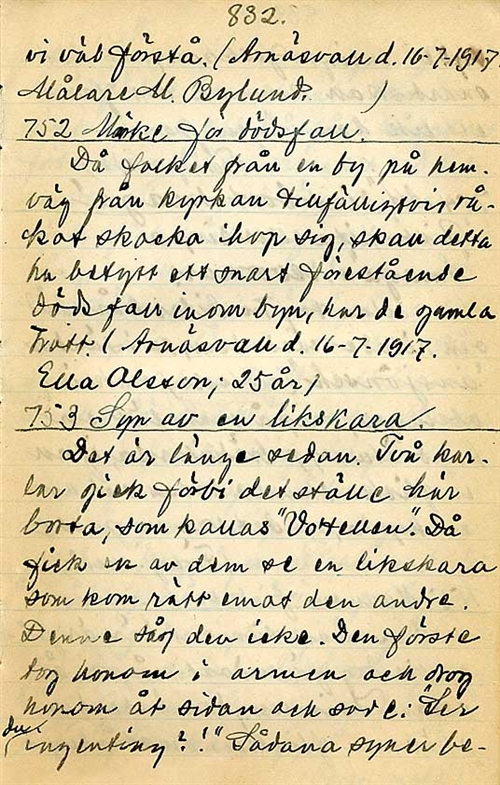 832.
vi väl förstå. (Arnäsvall d. 16-7-1917.
Målare M. Bylund. )
752 Märke för dödsfall.
Då folket från en by på hem-
väg från kyrkan tillfälligtvis rå-
kat skocka ihop sig, skall detta
ha betytt ett snart förestående
dödsfall inom byn, har de gamla
trott. (Arnäsvall d. 16-7-1917.
Ella Olsson, 25 år)
753 Syn av en likskara.
Det är länge sedan. Två kar-
lar gick förbi det ställe här
borta, som kallas "Votellen". Då
fick en av dem se en likskara
som kom rätt emot den andre.
Denne såg den icke. Den förste
tog honom i armen och drog
honom åt sidan och sade: "Ser
du ingenting?!" Sådana syner be-